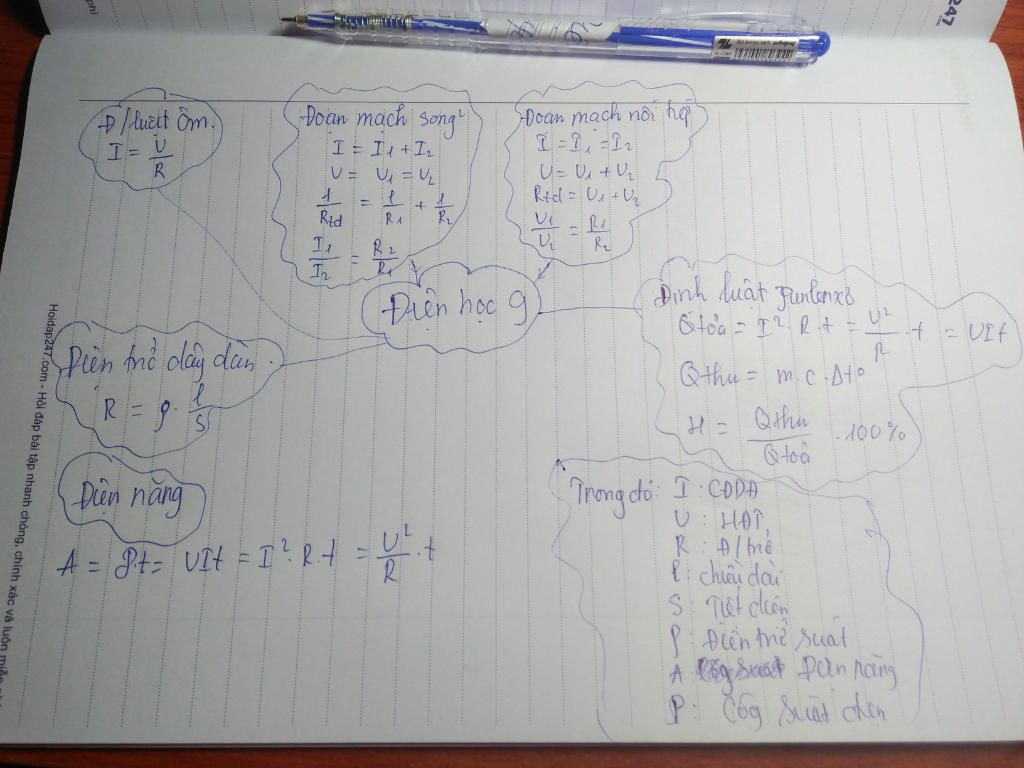 247
Đ/luật Ôm.
I = U/R
Đoạn mạch song²
I = I1 + I2
U = U1 = U2
1/Rtđ = 1/R1 + 1/R2
I1/I2 = R2/R1
Đoạn mạch nối tiếp
I = I1 = I2
U = U1 + U2
Rtđ = U1 + U2
U1/U2 = R1/R2
Điện học 9
Định luật Junlenxơ
Qtỏa = I². R. t = U²/R . t = UIt
Qthu = m.c.Δt°
H = Qthu/Qtoả . 100%
Điện trở dây dẫn.
R = ρ. l/S
Điện năng
A = P.t = UIt = I². R. t = U²/R . t
Trong đó: I : CĐDĐ
U : HĐT
R : Đ/trở
l : chiều dài
S : Tiết diện
ρ : Điện trở suất
A Điện năng
P : Côg suất điện
Hoidap247.com - Hỏi đáp bài tập nhanh chóng, chính xác và luôn miễn